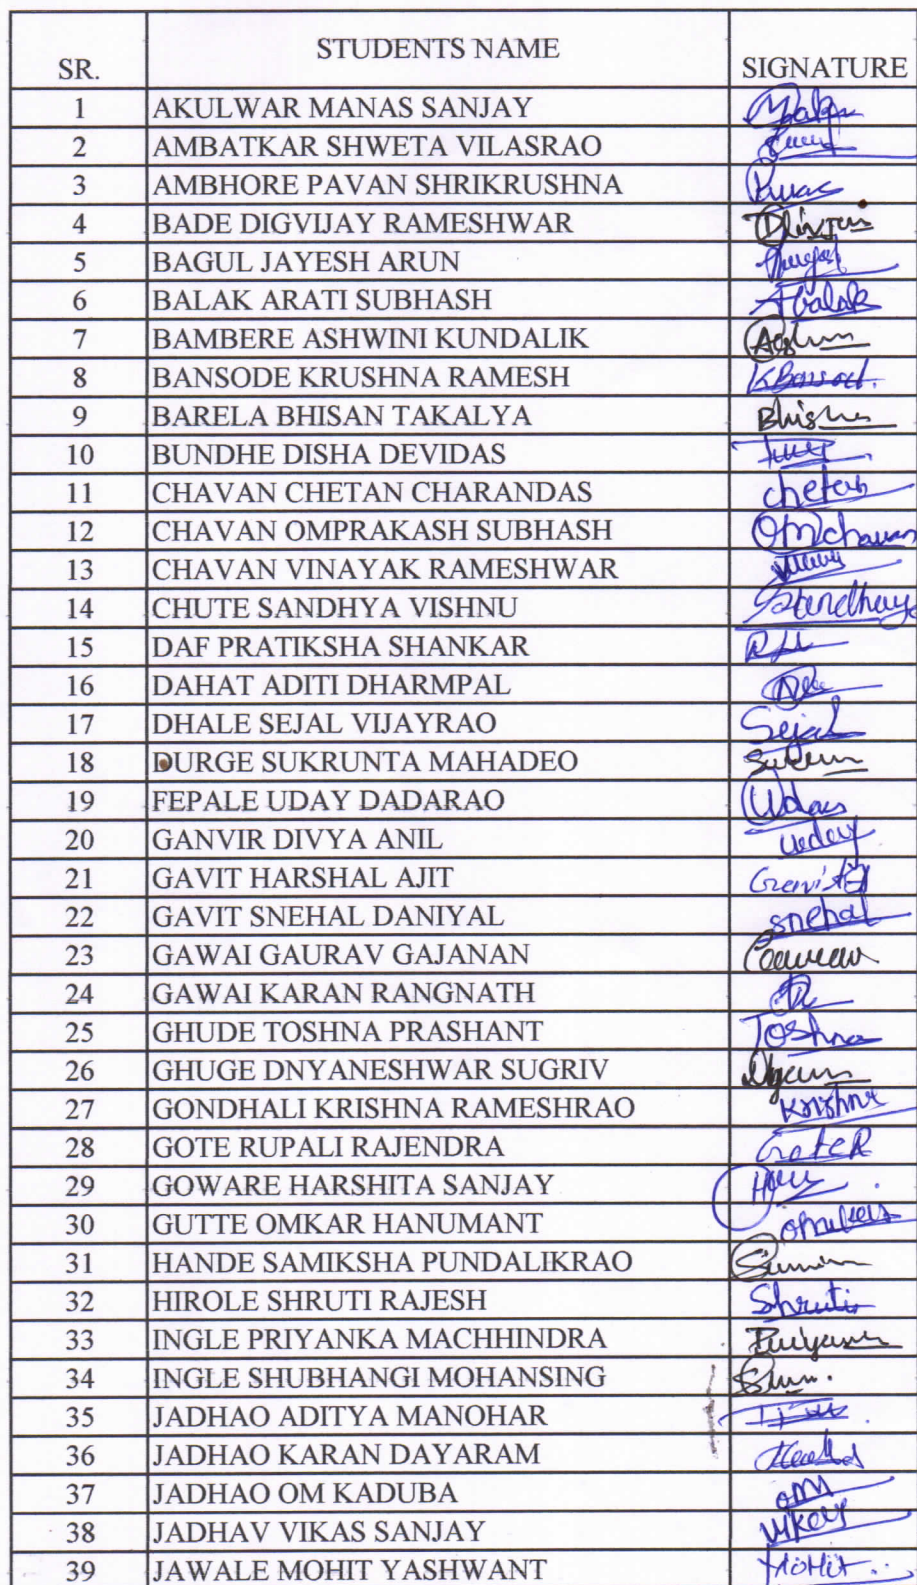 SR. STUDENTS NAME SIGNATURE
1 AKULWAR MANAS SANJAY
2 AMBATKAR SHWETA VILASRAO
3 AMBHORE PAVAN SHRIKRUSHNA
4 BADE DIGVIJAY RAMESHWAR
5 BAGUL JAYESH ARUN
6 BALAK ARATI SUBHASH Abalak
7 BAMBERE ASHWINI KUNDALIK
8 BANSODE KRUSHNA RAMESH
9 BARELA BHISAN TAKALYA
10 BUNDHE DISHA DEVIDAS
11 CHAVAN CHETAN CHARANDAS chetan
12 CHAVAN OMPRAKASH SUBHASH Omchavan
13 CHAVAN VINAYAK RAMESHWAR
14 CHUTE SANDHYA VISHNU
15 DAF PRATIKSHA SHANKAR
16 DAHAT ADITI DHARMPAL
17 DHALE SEJAL VIJAYRAO Sejal
18 DURGE SUKRUNTA MAHADEO
19 FEPALE UDAY DADARAO
20 GANVIR DIVYA ANIL
21 GAVIT HARSHAL AJIT
22 GAVIT SNEHAL DANIYAL snehal
23 GAWAI GAURAV GAJANAN
24 GAWAI KARAN RANGNATH
25 GHUDE TOSHNA PRASHANT Toshna
26 GHUGE DNYANESHWAR SUGRIV
27 GONDHALI KRISHNA RAMESHRAO Krishna
28 GOTE RUPALI RAJENDRA GoteR
29 GOWARE HARSHITA SANJAY
30 GUTTE OMKAR HANUMANT
31 HANDE SAMIKSHA PUNDALIKRAO
32 HIROLE SHRUTI RAJESH Shruti
33 INGLE PRIYANKA MACHHINDRA
34 INGLE SHUBHANGI MOHANSING
35 JADHAO ADITYA MANOHAR
36 JADHAO KARAN DAYARAM
37 JADHAO OM KADUBA om
38 JADHAV VIKAS SANJAY
39 JAWALE MOHIT YASHWANT Mohit